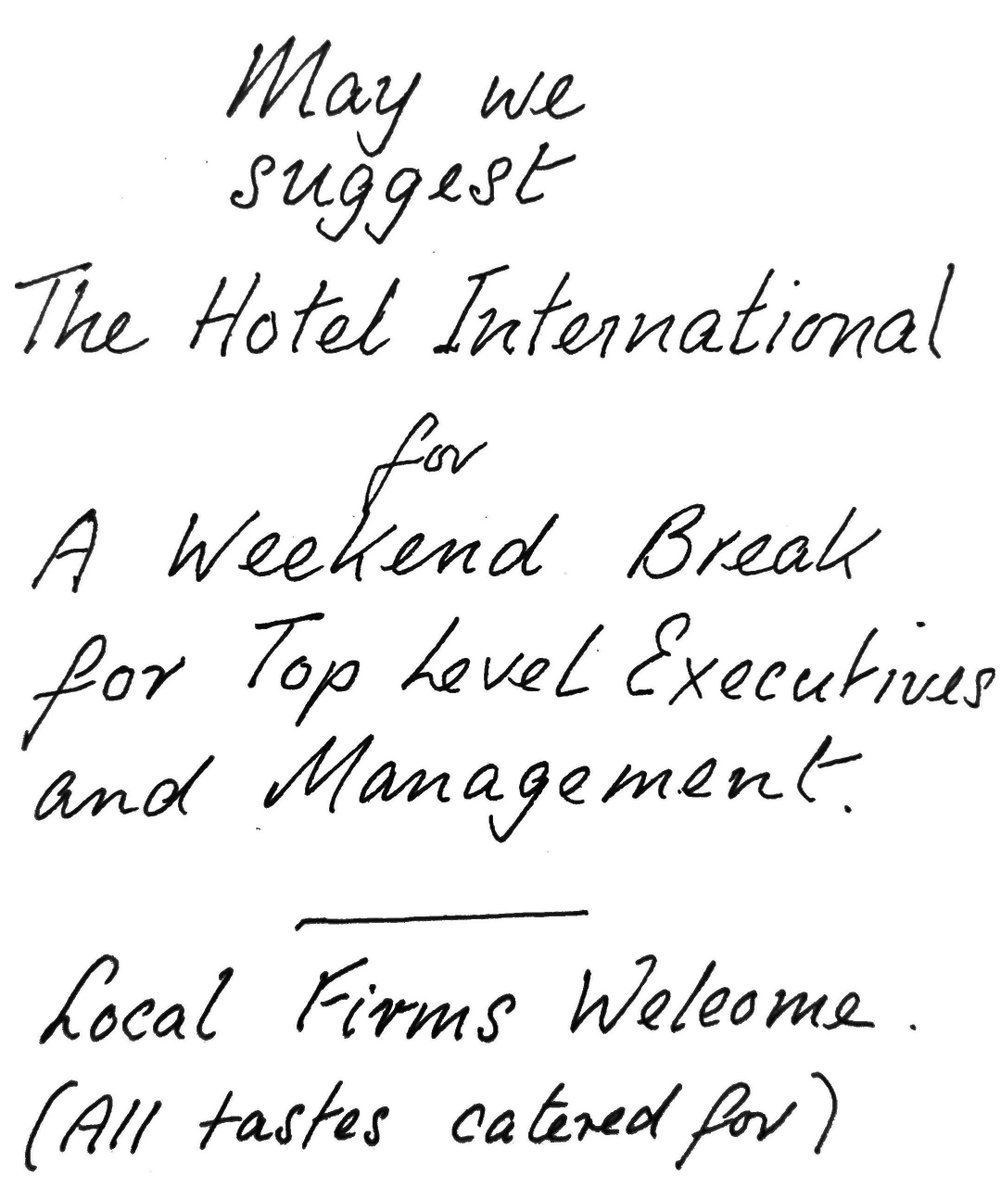 May we
suggest
The Hotel International
for
A Weekend Break
for Top Level Executives
and Management.
Local Firms Welcome.
(All tastes catered for)